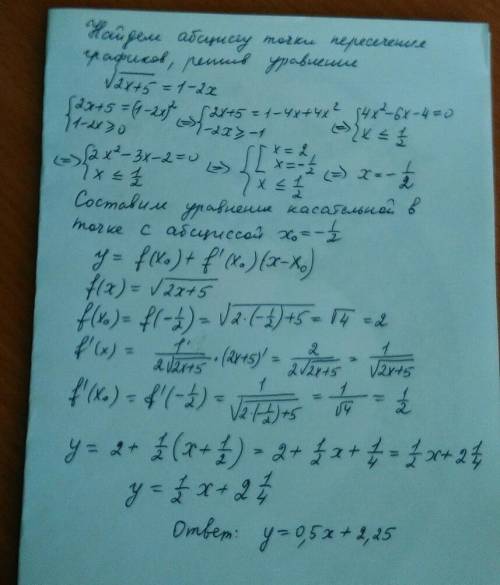 Найдем абсциссу точки пересечения
графиков, решив уравнение
√(2x+5) = 1-2x
{2x+5=(1-2x)² 1-2x≥0 (=) {2x+5=1-4x+4x² -2x≥-1 (=) {4x²-6x-4=0 x≤1/2
(=) {2x²-3x-2=0 x≤1/2 (=) {[x=2 x=-1/2 x≤1/2 (=) x=-1/2
Составим уравнение касательной в
точке с абциссой x₀=-1/2
y = f(x₀) + f'(x₀)(x-x₀)
f(x) = √(2x+5)
f(x₀) = f(-1/2) = √(2·(-1/2)+5) = √4 = 2
f'(x) = 1/(2√(2x+5)) · (2x+5)' = 2/(2√(2x+5)) = 1/√(2x+5)
f'(x₀) = f'(-1/2) = 1/√(2·(-1/2)+5) = 1/√4 = 1/2
y = 2 + 1/2(x+1/2) = 2 + 1/2x + 1/4 = 1/2x + 2 1/4
y = 1/2x + 2 1/4
Ответ: y=0,5x+2,25